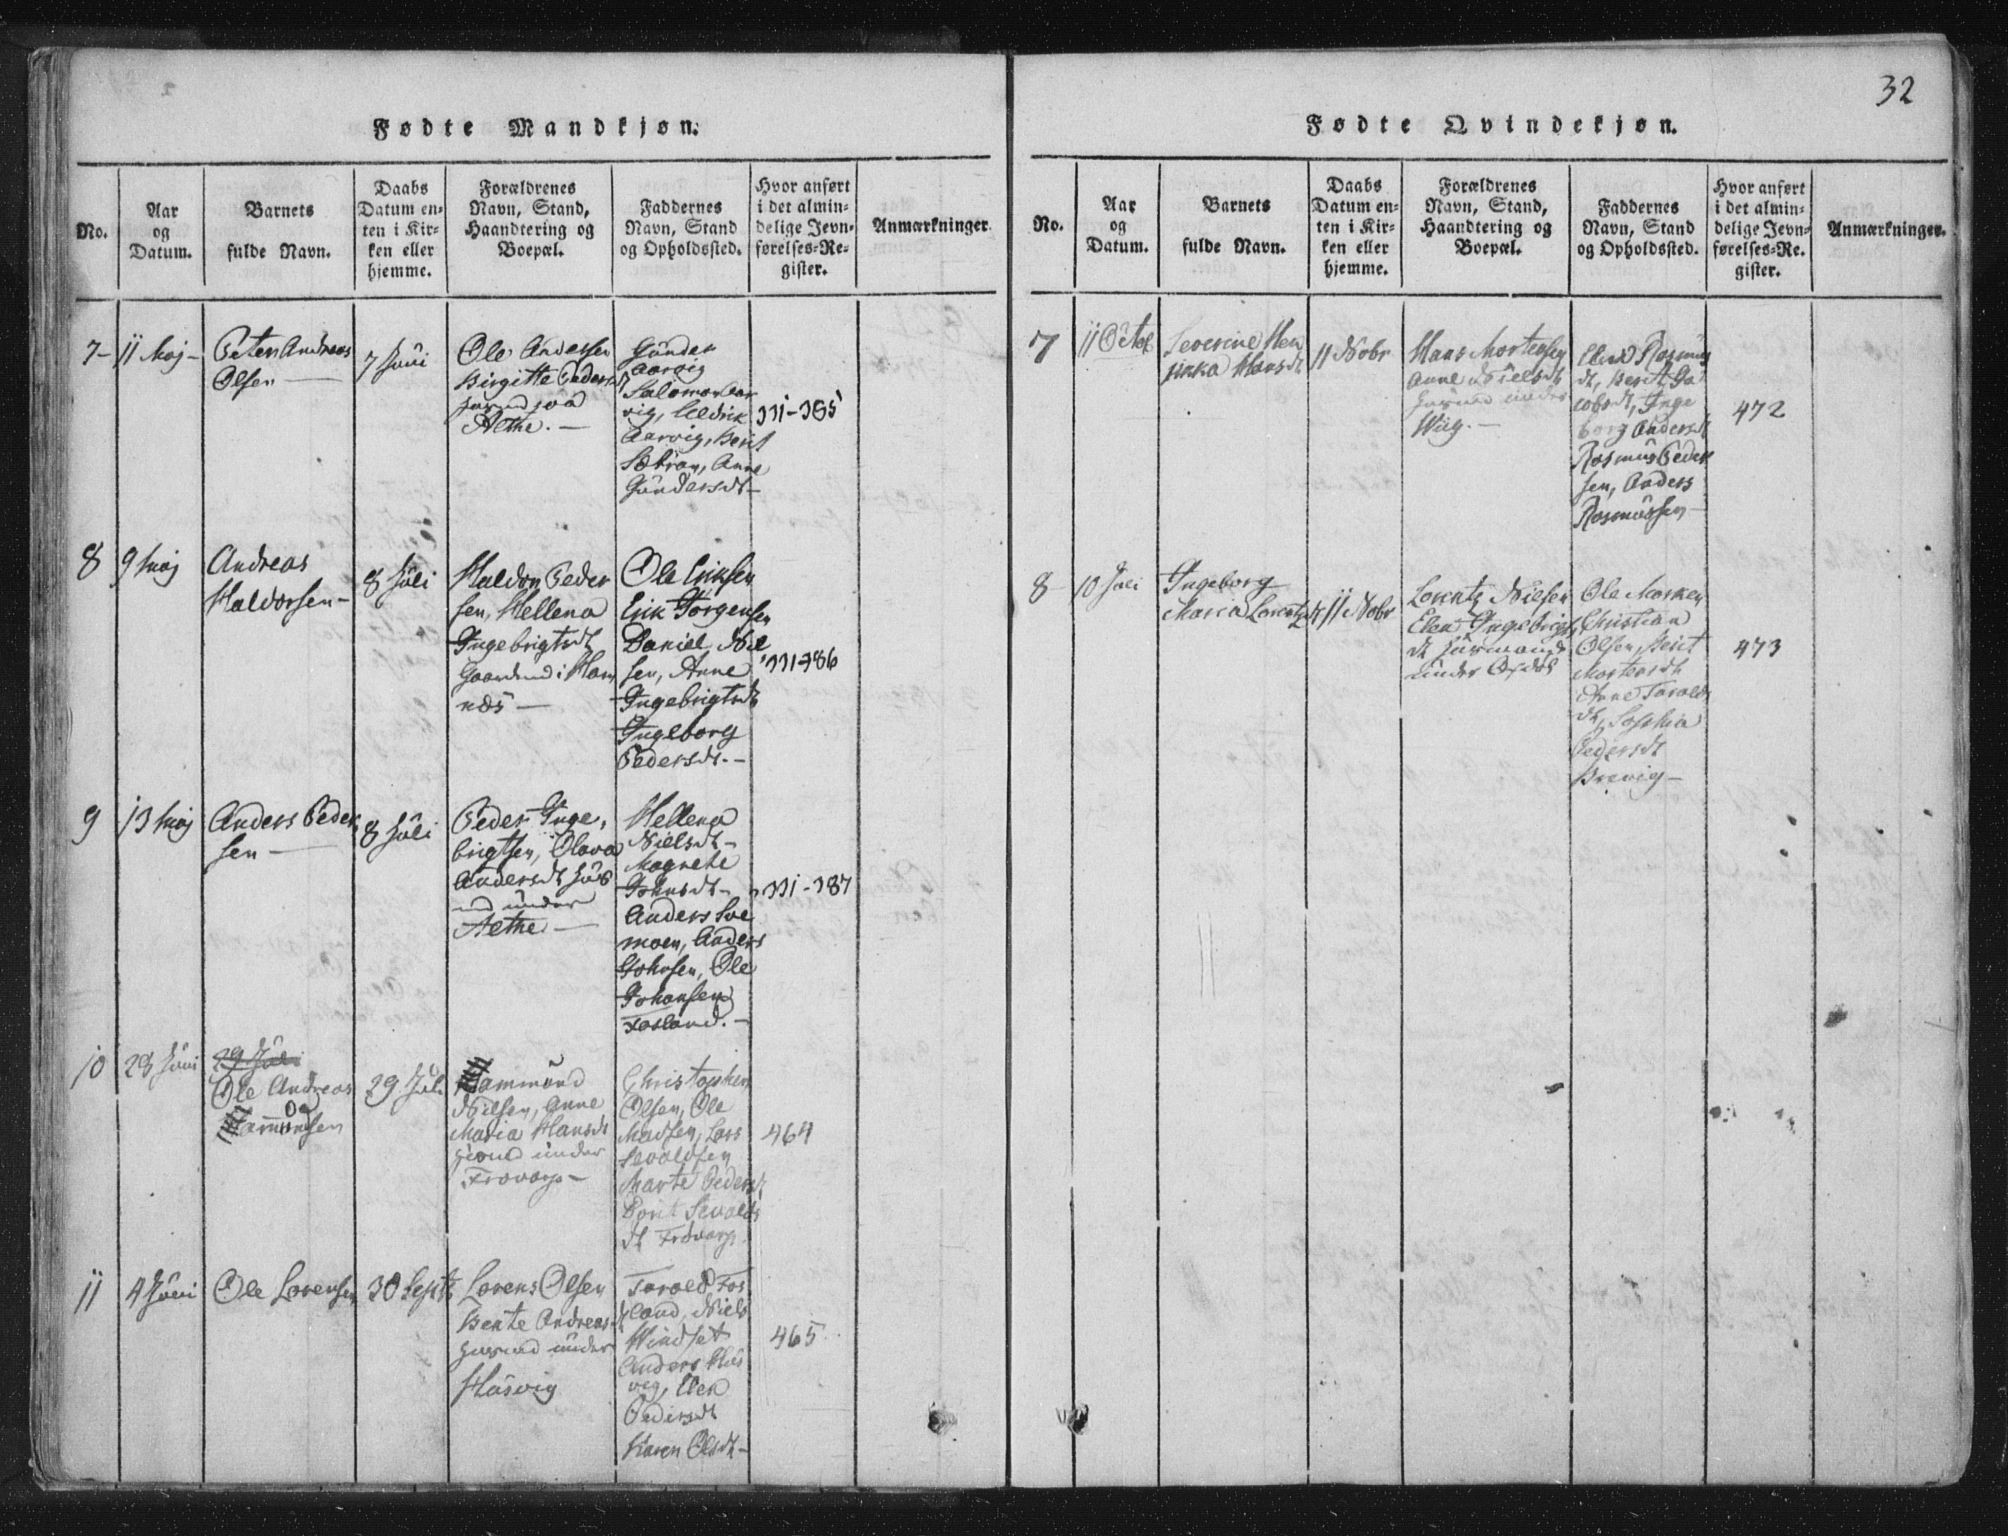 32
Fødte Mandkjøn.
No.
Aar
og
Datum.
Barnets
fulde Navn.
Daabs
Datum en-
ten i Kir-
ken eller
hjemme.
Forældrenes
Navn, Stand,
Haandtering og
Boepæl.
Faddernes
Navn, Stand
og Opholdssted.
Hvor anført
i det almin-
delige Jevn-
førelses-Re-
gister.
Anmærkninger.
7
11 Maj
Peter Andreas
Olsen
7 Juni
Ole Andersen
Birgitte Pedersdt
Aethe.
Gunder
Aarvig
Salomon Aar
vig, Cedrik
Aarvig, Berit
Anne
Gundersdt
111-385
8
9 Maj
Andreas
Haldorsen
8 Juli
Haldor Peder
sen, Hellena
Ingebrigtsdt
Gaardmd i Ham
næs
Ole Eriksen
Erik Jørgensen
Daniel Niel
sen, Anne
Ingebrigtsdt
Ingeborg
Pedersdt.
111-386
9
13 Maj
Anders Peder
sen
8 Juli
Peder Inge-
brigtsen, Olava
Andersdt huus
md under
Aethe.
Hellena
Nielsdt
Magrete
Johnsdt
Anders Soe
moen, Anders
Johnsen, Ole
Johansen
Fosland.
111-387
10
28 Juni
29 Juli
Ole Andreas
Hammondsen
29 Juli
Hammund
Nilsen, Anne
Maria Hansdt
under
Frovarp
Christopher
Olsen, Ole
Madsen, Lars
Sevaldsen
Marte Pedersdt
Berit Sevalds
dt Frovarp
464
11
4 Juni
Ole Lorensen
30 Septb
Lorens Olsen
Bente Andreasdt
husmd under
Husvig
Tarald Fos
land, Niels
Windset
Anders Hus
vig, Elen
Pedersdt
Karen Olsdt
465
Fødte Qvindekjøn.
No.
Aar
og
Datum.
Barnets
fulde Navn.
Daabs
Datum en-
ten i Kir-
ken eller
hjemme.
Forældrenes
Navn, Stand,
Haandtering og
Boepæl.
Faddernes
Navn, Stand
og Opholdssted.
Hvor anført
i det almin-
delige Jevn-
førelses-Re-
gister.
Anmærkninger.
7
11 Octob
Severine Hen
rikka Hansdt
11 Nobr
Hans Mortensen
Anne Nielsdt
husmd under
Wiig.
Elen Rasmus
dt, Berit Ja
cobsdt, Inge
borg Andersdt
Rasmus Peder
sen, Anders
Rasmussen
472
8
10 Juli
Ingeborg
Maria Lorentzdt
11 Nobr
Lorentz Nielsen
Elen Ingebrigts
dt husmand
under
Ole Marken
Christian
Olsen, Berit
Mortensdt
Anne Tarald
dt, Sophia
Pedersdt
Brevig
473